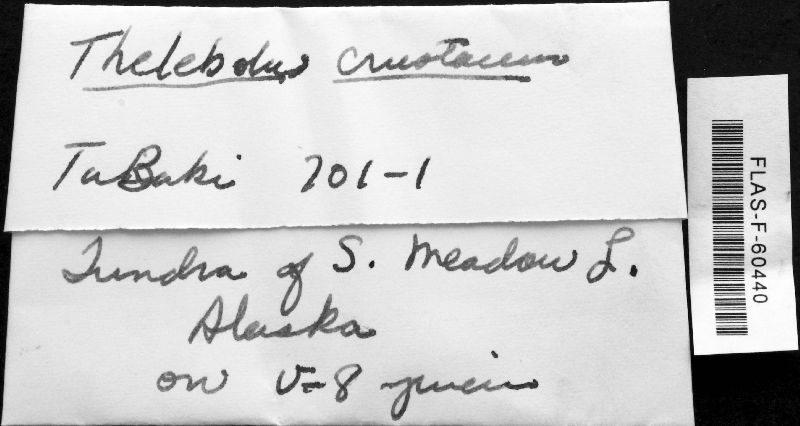 Thelebolus crustaceus
TuBaki 701-1
Tundra of S. Meadow L.
Alaska
on V-8 juice
FLAS-F-60440